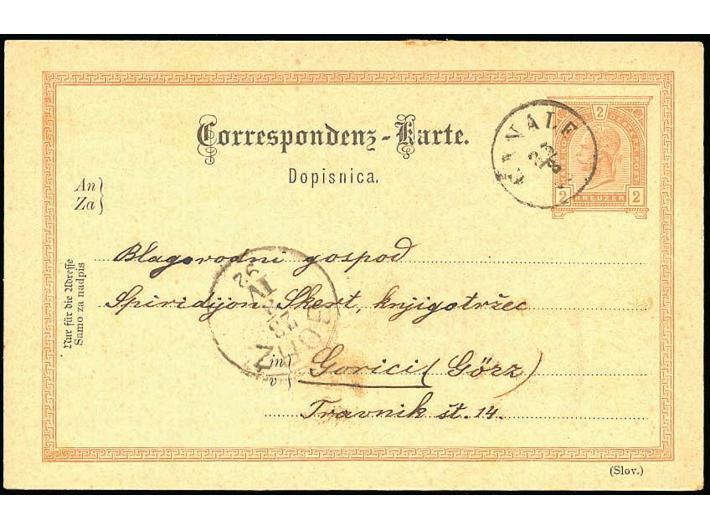 2
Correspondenz-Karte.
CANALE
Dopisnica.
2 KREUZER 2
An
Za
Blagorodni gospod
Nur für die Adresse
Samo za nadpis
Spiridijon
knjigotržec
GÖRZ
in
v
Gorici (Görz)
Travnik št. 14.
(Slov.)